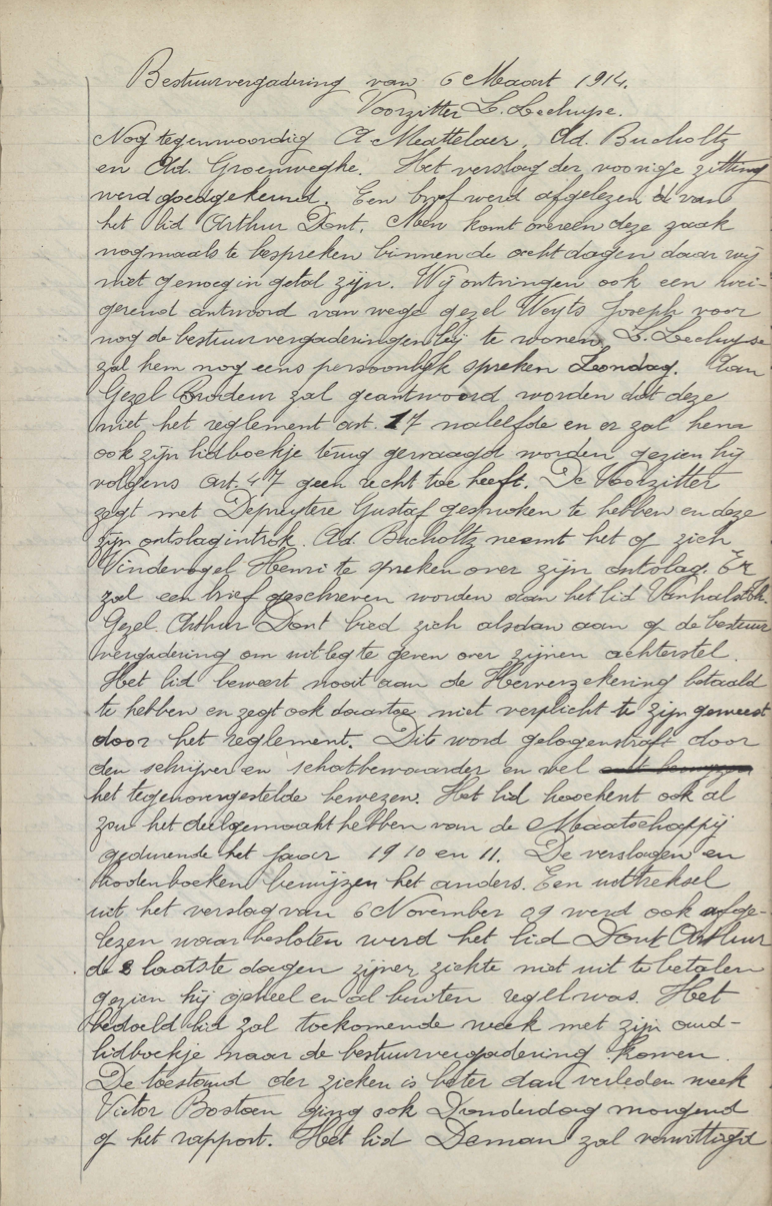 Bestuurvergadering van 6 Maart 1914.
Voorzitter L. Lechuyse.
Nog tegenwoordig A Mattelaer, Ad. Bucholtz
en Ad. Groenweghe. Het verslag der voorige zitting
werd goedgekeurd. Een brief werd afgelezen van
het lid Arthur Dont. Men komt overeen deze zaak
nogmaals te bespreken binnen de acht dagen daar wij
niet genoeg in getal zijn. Wij ontvingen ook een wei-
gerend antwoord van wege gezel Weyts Joseph voor
nog de bestuurvergaderingen bij te wonen. L. Lechuyse
zal hem nog eens persoonlijk spreken Zondag. Aan
Gezel Brodeur zal geantwoord worden dat deze
niet het reglement art. 17 naleefde en er zal hem
ook zijn lidboekje terug gevraagd worden gezien hij
volgens art. 47 geen recht toe heeft. De Voorzitter
zegt met Depreytere Gustaf gesproken te hebben en deze
zijn ontslag introk. Ad. Bucholtz neemt het op zich
Vindevogel Henri te spreken over zijn ontslag. Er
zal een brief geschreven worden aan het lid
Gezel Arthur Dont bied zich alsdan aan op de bestuur
vergadering om uitleg te geven over zijnen achterstel.
Het lid beweert nooit aan de Herverzekering betaald
te hebben en zegt ook daartoe niet verplicht te zijn geweest
door het reglement. Dit word gelogenstraft door
den schrijver en schatbewaarder en wel
het tegenovergestelde bewezen. Het lid loochent ook al
zou het deel gemaakt hebben van de Maatschappij
gedurende het jaar 1910 en 11. De verslagen en
bodenboeken bewijzen het anders. Een uittreksel
uit het verslag van 6 November 09 werd ook afge-
lezen waar besloten werd het lid Dont Arthur
de 8 laatste dagen zijner ziekte niet uit te betalen
gezien hij geheel en al buiten regel was. Het
bedoeld lid zal toekomende week met zijn oud-
lidboekje naar de bestuurvergadering komen.
De toestand der zieken is beter dan verleden week
Victor Bostoen ging ook Donderdag morgend
op het rapport. Het lid Deman zal verwittigd